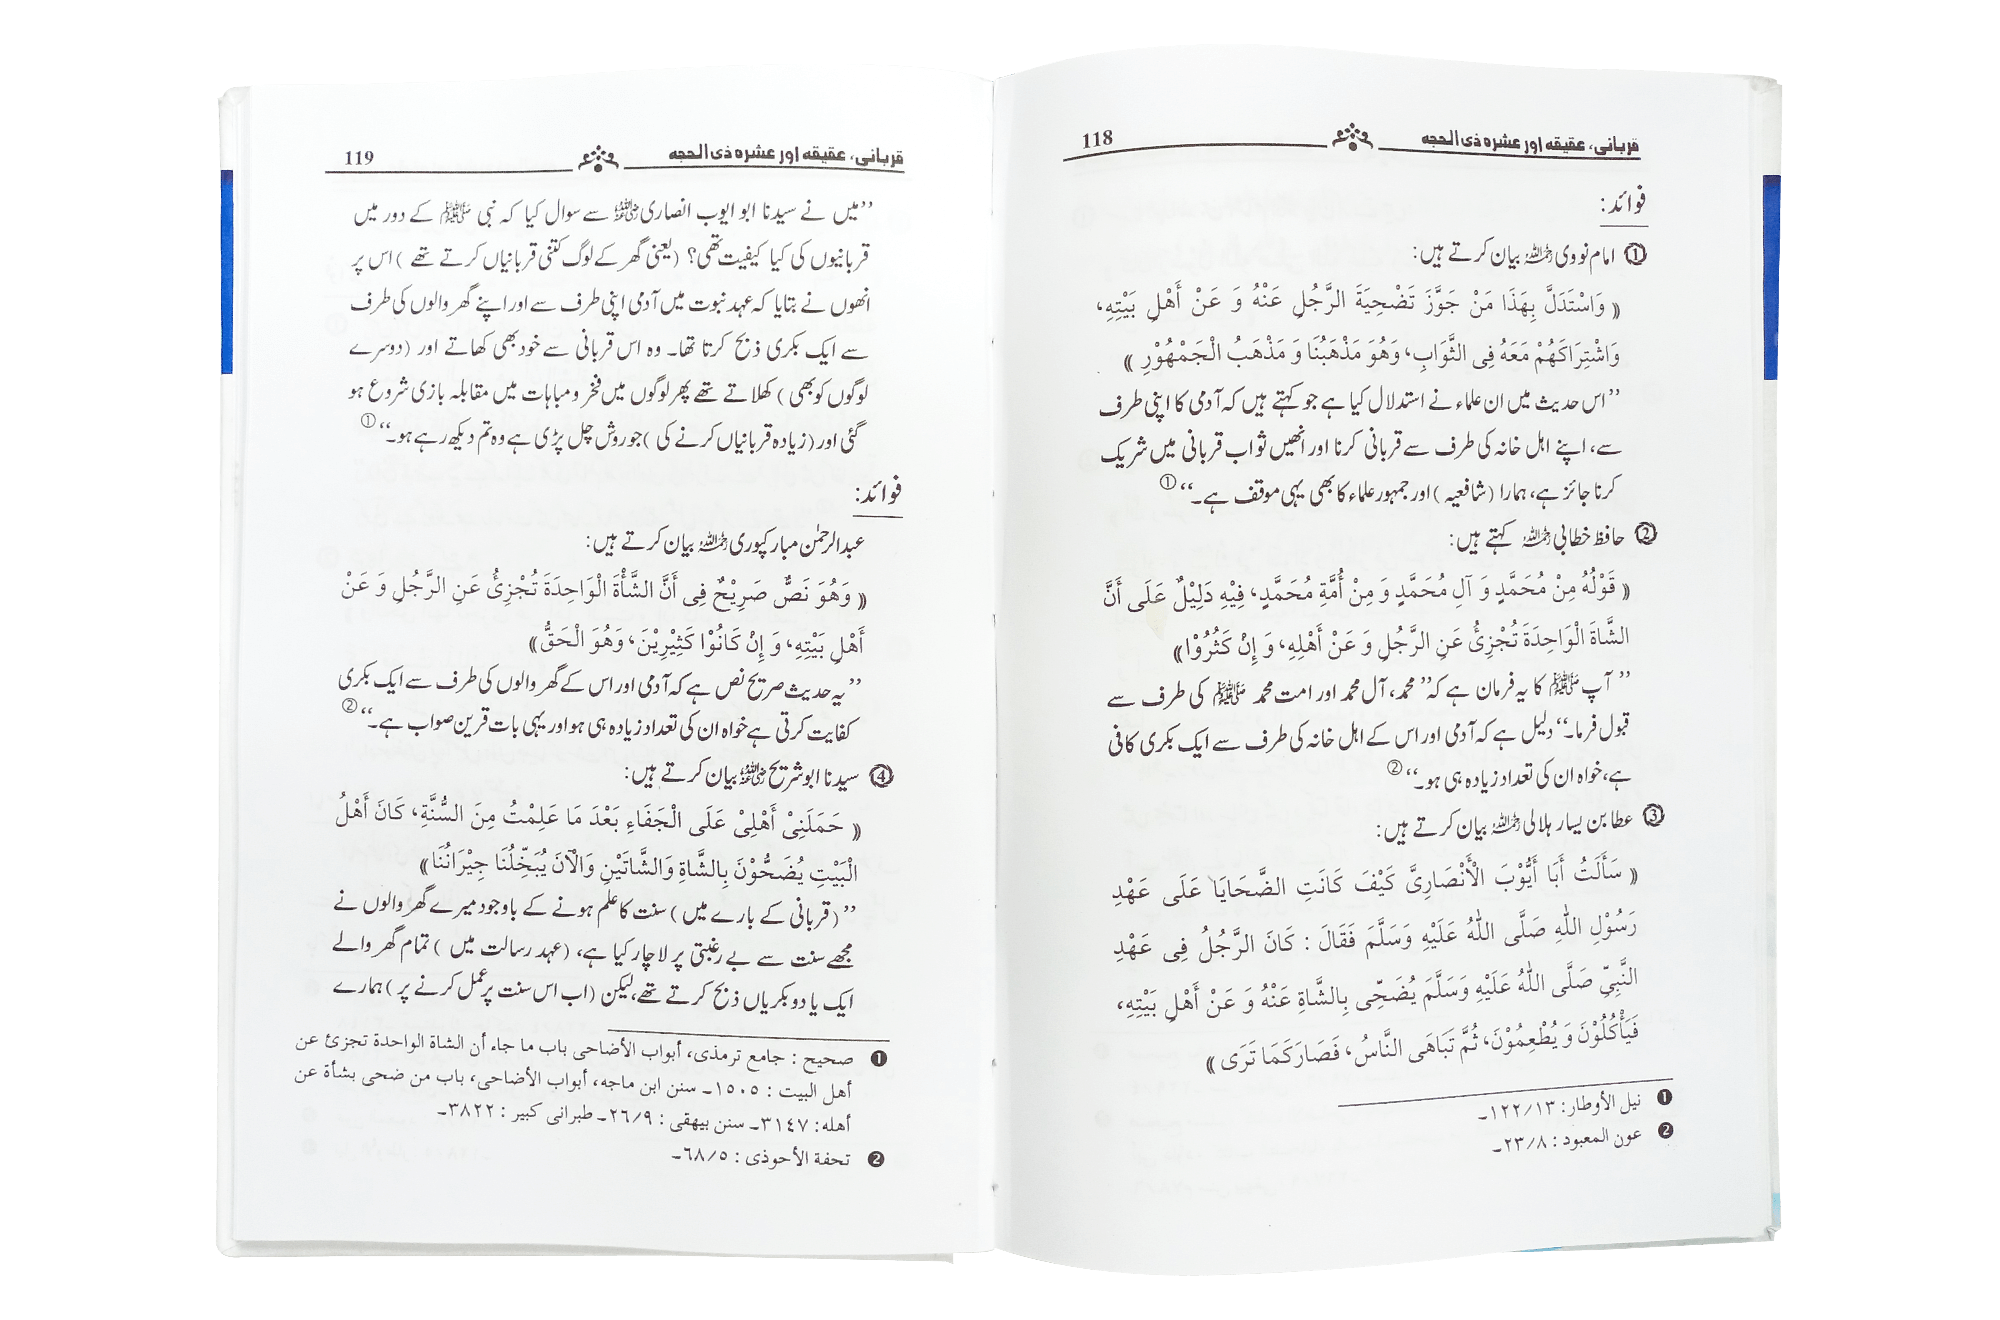 قربانی، عقیقہ اور عشرہ ذی الحجہ 118
فوائد:
① امام نووی رحمہ اللہ بیان کرتے ہیں:
(( وَاسْتَدَلَّ بِهَذَا مَنْ جَوَّزَ تَضْحِيَةَ الرَّجُلِ عَنْهُ وَ عَنْ أَهْلِ بَيْتِهِ،
وَاشْتِرَاكَهُمْ مَعَهُ فِى الثَّوَابِ، وَهُوَ مَذْهَبُنَا وَ مَذْهَبُ الْجَمْهُوْرِ ))
’’اس حدیث میں ان علماء نے استدلال کیا ہے جو کہتے ہیں کہ آدمی کا اپنی طرف
سے، اپنے اہل خانہ کی طرف سے قربانی کرنا اور انھیں ثواب قربانی میں شریک
کرنا جائز ہے، ہمارا (شافعیہ) اور جمہور علماء کا بھی یہی موقف ہے۔‘‘ ①
② حافظ خطابی رحمہ اللہ کہتے ہیں:
(( قَوْلُهُ مِنْ مُحَمَّدٍ وَ آلِ مُحَمَّدٍ وَ مِنْ أُمَّةِ مُحَمَّدٍ، فِيْهِ دَلِيْلٌ عَلَى أَنَّ
الشَّاةَ الْوَاحِدَةَ تُجْزِئُ عَنِ الرَّجُلِ وَ عَنْ أَهْلِهِ، وَ إِنْ كَثُرُوْا))
’’آپ ﷺ کا یہ فرمان ہے کہ ’’محمد، آل محمد اور امت محمد ﷺ کی طرف سے
قبول فرما۔‘‘ دلیل ہے کہ آدمی اور اس کے اہل خانہ کی طرف سے ایک بکری کافی
ہے، خواہ ان کی تعداد زیادہ ہی ہو۔‘‘ ②
③ عطا بن یسار ہلالی رحمہ اللہ بیان کرتے ہیں:
(( سَأَلَتُ أَبَا أَيُّوْبَ الْأَنْصَارِىَّ كَيْفَ كَانَتِ الضَّحَايَا عَلَى عَهْدِ
رَسُوْلِ اللهِ صَلَّى اللهُ عَلَيْهِ وَسَلَّمَ فَقَالَ : كَانَ الرَّجُلُ فِى عَهْدِ
النَّبِىِّ صَلَّى اللهُ عَلَيْهِ وَسَلَّمَ يُضَحِّى بِالشَّاةِ عَنْهُ وَ عَنْ أَهْلِ بَيْتِهِ،
فَيَأْكُلُوْنَ وَ يُطْعِمُوْنَ، ثُمَّ تَبَاهَى النَّاسُ، فَصَارَ كَمَا تَرَى ))
❶ نيل الأوطار: ١٢٢/١٣۔
❷ عون المعبود : ٢٣/٨۔
قربانی، عقیقہ اور عشرہ ذی الحجہ 119
’’میں نے سیدنا ابو ایوب انصاری رضی اللہ عنہ سے سوال کیا کہ نبی ﷺ کے دور میں
قربانیوں کی کیا کیفیت تھی؟ (یعنی گھر کے لوگ کتنی قربانیاں کرتے تھے) اس پر
انھوں نے بتایا کہ عہد نبوت میں آدمی اپنی طرف سے اور اپنے گھر والوں کی طرف
سے ایک بکری ذبح کرتا تھا۔ وہ اس قربانی سے خود بھی کھاتے اور (دوسرے
لوگوں کو بھی) کھلاتے تھے پھر لوگوں میں فخر و مباہات میں مقابلہ بازی شروع ہو
گئی اور (زیادہ قربانیاں کرنے کی) جو روش چل پڑی ہے وہ تم دیکھ رہے ہو۔‘‘ ①
فوائد:
عبدالرحمٰن مبارکپوری رحمہ اللہ بیان کرتے ہیں:
(( وَهُوَ نَصٌّ صَرِيْحٌ فِى أَنَّ الشَّأْةَ الْوَاحِدَةَ تُجْزِئُ عَنِ الرَّجُلِ وَ عَنْ
أَهْلِ بَيْتِهِ، وَ إِنْ كَانُوْا كَثِيْرِيْنَ، وَهُوَ الْحَقُّ))
’’یہ حدیث صریح نص ہے کہ آدمی اور اس کے گھر والوں کی طرف سے ایک بکری
کفایت کرتی ہے خواہ ان کی تعداد زیادہ ہی ہو اور یہی بات قرین صواب ہے۔‘‘ ②
④ سیدنا ابو شریح رضی اللہ عنہ بیان کرتے ہیں:
(( حَمَلَنِىْ أَهْلِىْ عَلَى الْجَفَاءِ بَعْدَ مَا عَلِمْتُ مِنَ السُّنَّةِ، كَانَ أَهْلُ
الْبَيْتِ يُضَحُّوْنَ بِالشَّاةِ وَالشَّاتَيْنِ وَالْآنَ يُبَخِّلُنَا جِيْرَانُنَا))
’’(قربانی کے بارے میں) سنت کا علم ہونے کے باوجود میرے گھر والوں نے
مجھے سنت سے بے رغبتی پر لاچار کیا ہے، (عہد رسالت میں) تمام گھر والے
ایک یا دو بکریاں ذبح کرتے تھے، لیکن (اب اس سنت پر عمل کرنے پر) ہمارے
❶ صحيح : جامع ترمذى، أبواب الأضاحى باب ما جاء أن الشاة الواحدة تجزئ عن
أهل البيت : ١٥٠٥۔ سنن ابن ماجه، أبواب الأضاحى، باب من ضحى بشأة عن
أهله: ٣١٤٧۔ سنن بيهقى : ٢٦/٩۔ طبرانى كبير : ٣٨٢٢۔
❷ تحفة الأحوذى : ٦٨/٥۔